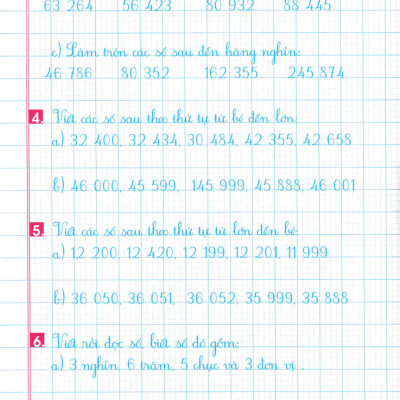 63 264 56 423 80 932 88 445
c) Làm tròn các số sau đến hàng nghìn:
46 786 80 352 162 355 245 874
4. Viết các số sau theo thứ tự từ bé đến lớn:
a) 32 400, 32 434, 30 484, 42 355, 42 658
b) 46 000, 45 599, 145 999, 45 888, 46 001
5. Viết các số sau theo thứ tự từ lớn đến bé:
a) 12 200, 12 420, 12 199, 12 201, 11 999
b) 36 050, 36 051, 36 052, 35 999, 35 888
6. Viết rồi đọc số, biết số đó gồm:
a) 3 nghìn, 6 trăm, 5 chục và 3 đơn vị.